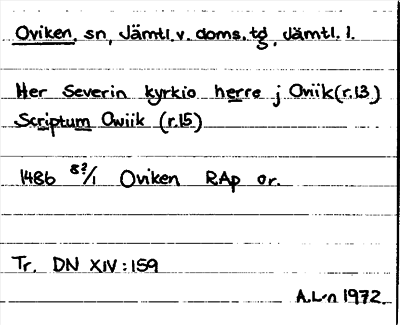 Oviken, sn, Jämtl.v. doms.tg, Jämtl. l.
Her Severin kyrkio herre j Oviik (r.13)
Scriptum Owiik (r.15)
1486 8?/1 Oviken RAp or.
Tr. DN XIV:159
A.L-n 1972.